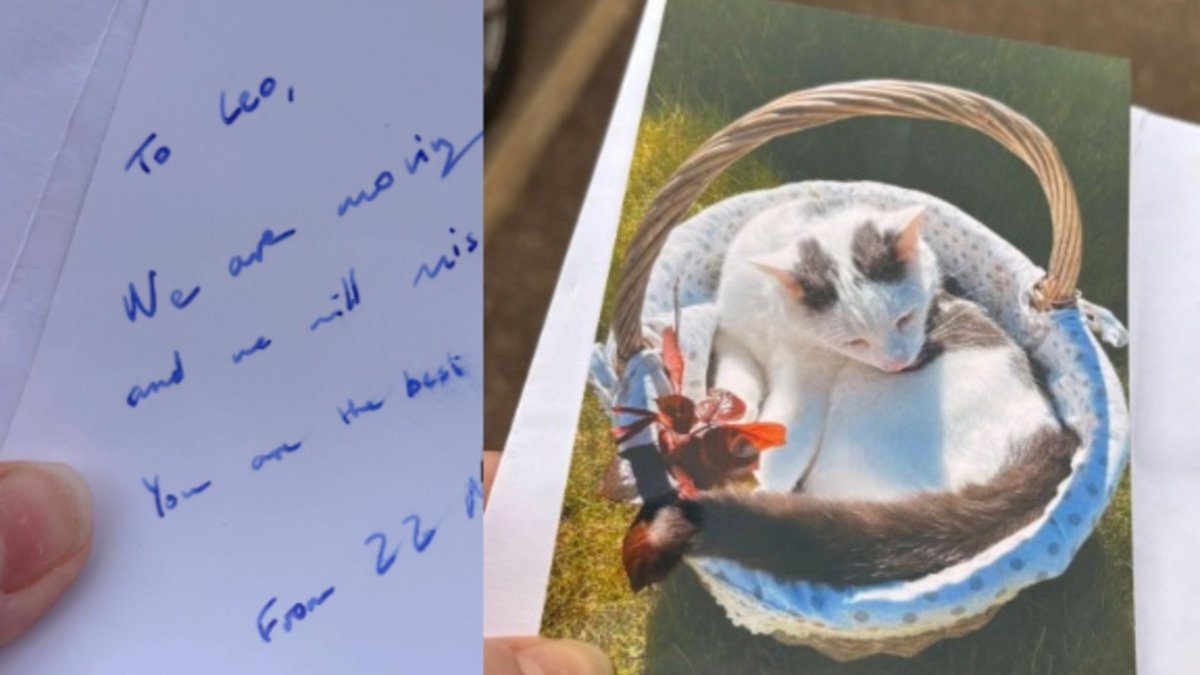 To Leo,
We are moving
and we will mis
You are the best
From 22